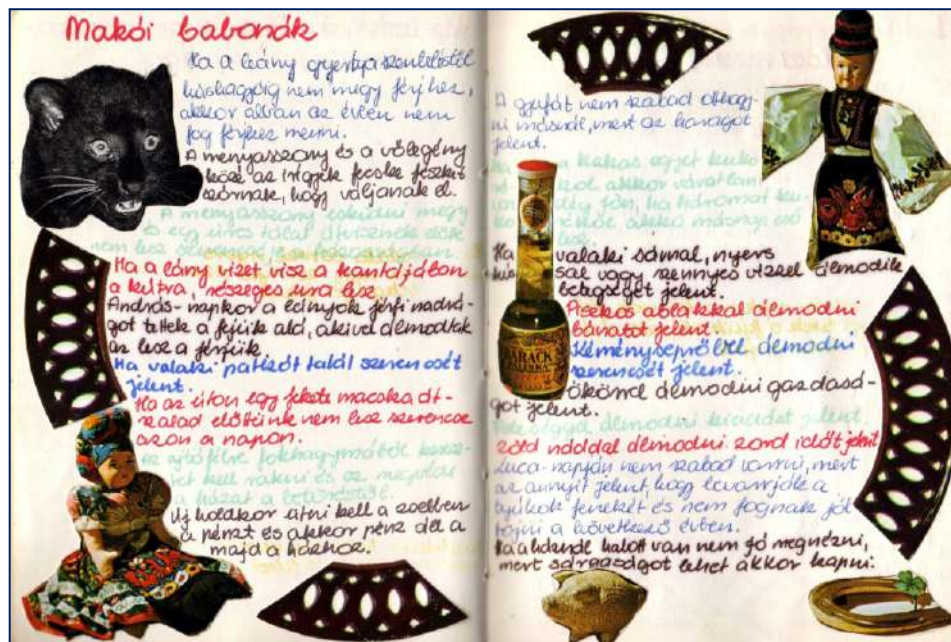 Makói babonák
Ha a leány gyertyaszenteléstől
húshagyóig nem megy férjhez,
akkor abban az évben nem
fog férjhez menni.
A menyasszony és a vőlegény
közé az irigyek fecske fészket
szórnak, hogy váljanak el.
A menyasszony esküdni megy
és egy üres tálat átvisznek előtte
nem lesz szerencséje a házasságban.
Ha a lány vizet visz a kantájában
a kútra, részeges ura lesz
András-napkor a lányok férfi nadrá-
got tettek a fejük alá, akivel álmodtak
az lesz a férjük.
Ha valaki patkót talál szerencsét
jelent.
Ha az úton egy fekete macska át-
szalad előttünk nem lesz szerencse
azon a napon.
az ajtófélre fokhagymától keresz-
tet kell rakni és az megvédi
a házat a betöréstől.
Új holdkor ütni kell a zsebben
a pénzt és akkor pénz áll a
majd a házhoz.
A gyufát nem szabad otthagy-
ni másnál, mert az haragot
jelent.
a kakas egyet kuko
akkor váratlan
jön, ha hármat ku-
akkor másnap eső
lesz.
Ha valaki sárral, nyers
hússal vagy szennyes vízzel álmodik
betegséget jelent.
Piszkos ablakkal álmodni
bánatot jelent
Kéményseprővel álmodni
szerencsét jelent.
Ökörrel álmodni gazdasá-
got jelent.
Feleséggel álmodni kiadást jelent.
Zöld náddal álmodni zord időt jelent
Luca-napján nem szabad varrni, mert
az annyit jelent, hogy bevarrják a
tyúkok fenekét és nem fognak jól
tojni a következő évben.
Ha a háznál halott van nem jó megnézni,
mert sárgaságot lehet akkor kapni.
BARACK
PÁLINKA